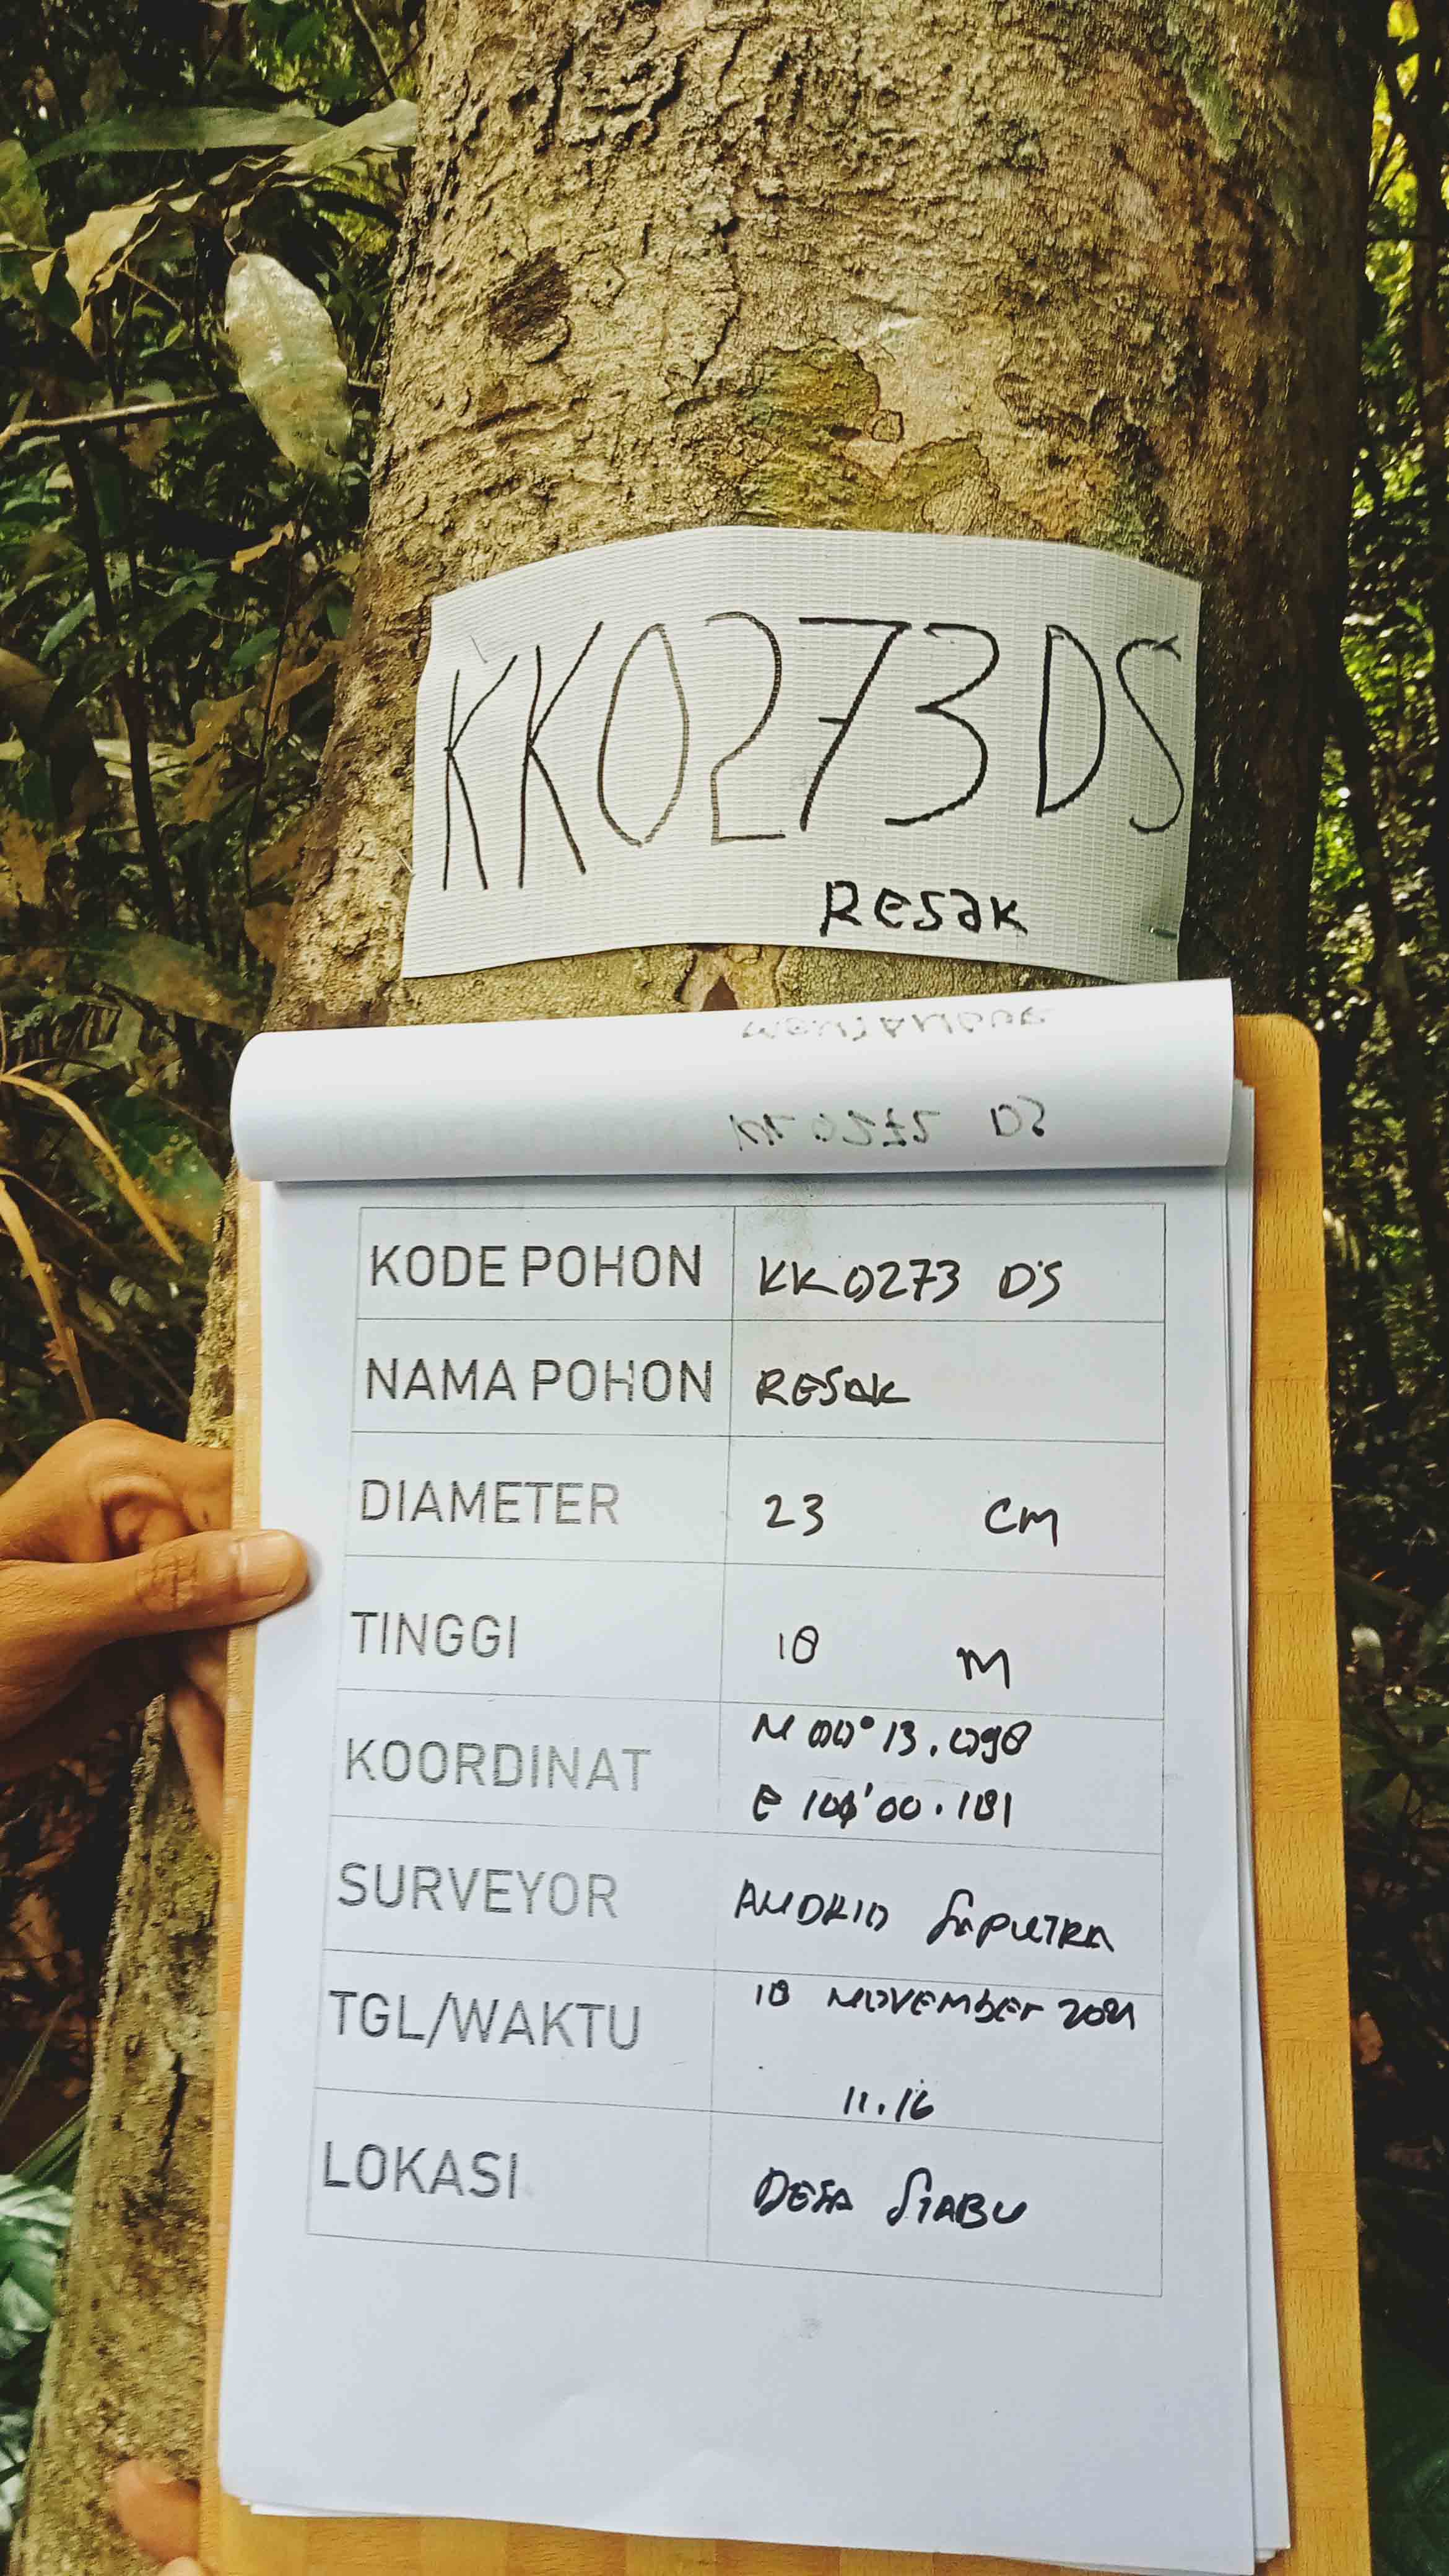 KK0273 DS
Resak
KK0272 DS
KODE POHON KK0273 DS
NAMA POHON RESAK
DIAMETER 23 CM
TINGGI 18 M
KOORDINAT N 00° 13.098
E 100' 00.181
SURVEYOR ANDRIO SAPUTRA
TGL/WAKTU 18 NOVEMBER 2021
11.16
LOKASI DESA SIABU